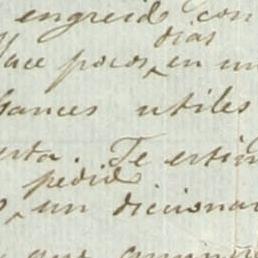 engreid con
dias
Hace pocos ^ en un
sances utiles
erta. Te estim
pedido
^ un dicciona